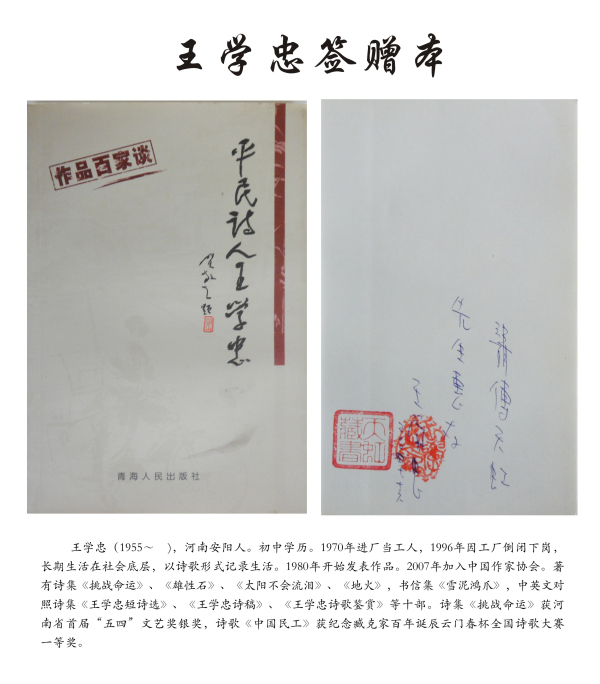 王学忠签赠本
作品百家谈
平民诗人王学忠
青海人民出版社
先生惠存
天虹
藏书
王学忠（1955～　），河南安阳人。初中学历。1970年进厂当工人，1996年因工厂倒闭下岗，
长期生活在社会底层，以诗歌形式记录生活。1980年开始发表作品。2007年加入中国作家协会。著
有诗集《挑战命运》、《雄性石》、《太阳不会流泪》、《地火》，书信集《雪泥鸿爪》，中英文对
照诗集《王学忠短诗选》、《王学忠诗稿》、《王学忠诗歌鉴赏》等十部。诗集《挑战命运》获河
南省首届“五四”文艺奖银奖，诗歌《中国民工》获纪念臧克家百年诞辰云门春杯全国诗歌大赛
一等奖。